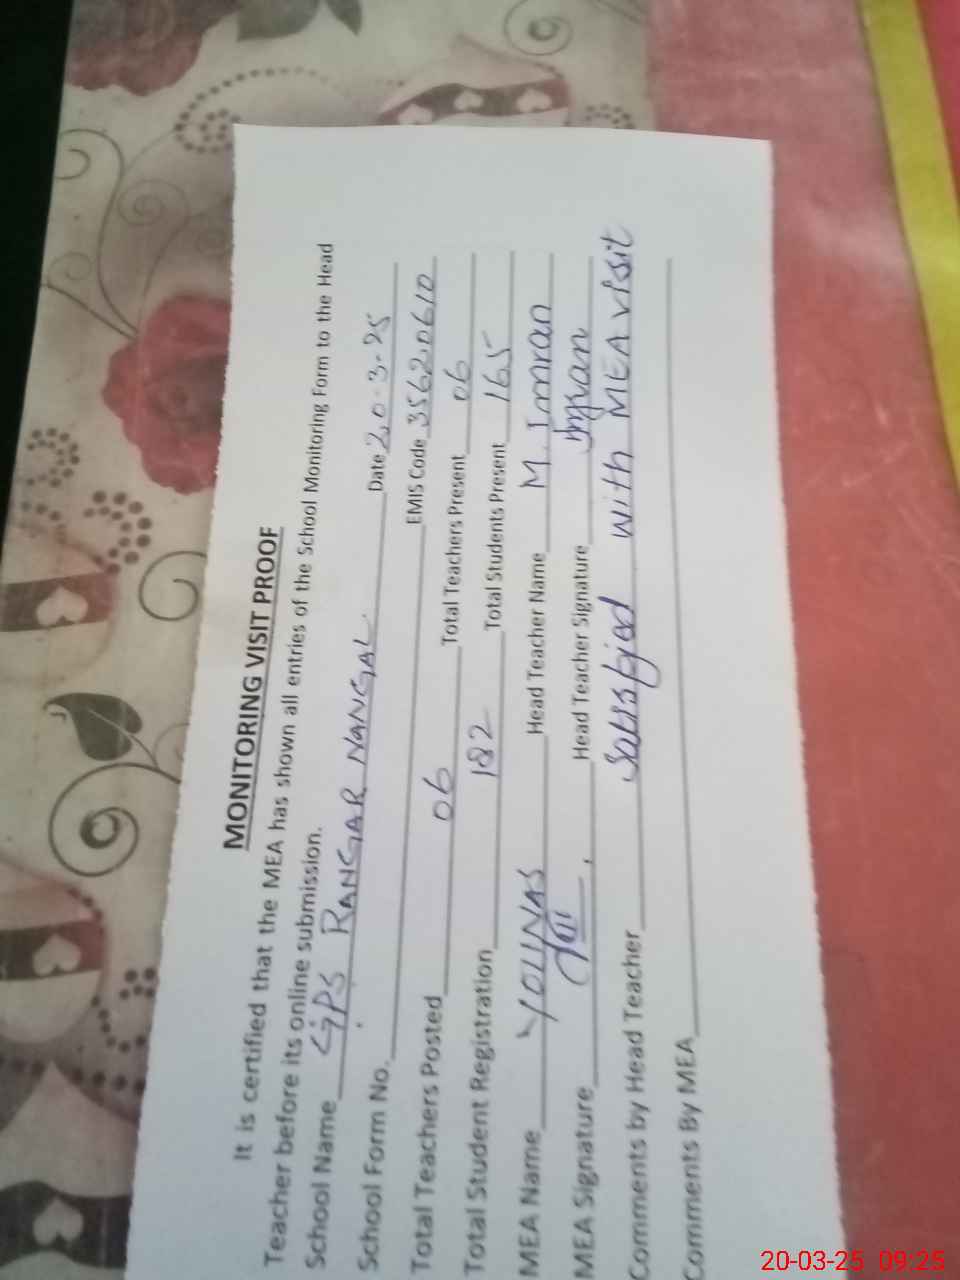 MONITORING VISIT PROOF
It is certified that the MEA has shown all entries of the School Monitoring Form to the Head
Teacher before its online submission.
School Name GPS RANGAR NANGAL. Date 20-3-25
School Form No. EMIS Code 35620610
Total Teachers Posted 06 Total Teachers Present 06
Total Student Registration 182 Total Students Present 165
MEA Name YOUNAS Head Teacher Name M. Imran
MEA Signature Head Teacher Signature Imran
Comments by Head Teacher Satisfied with MEA visit
Comments By MEA
20-03-25 09:25